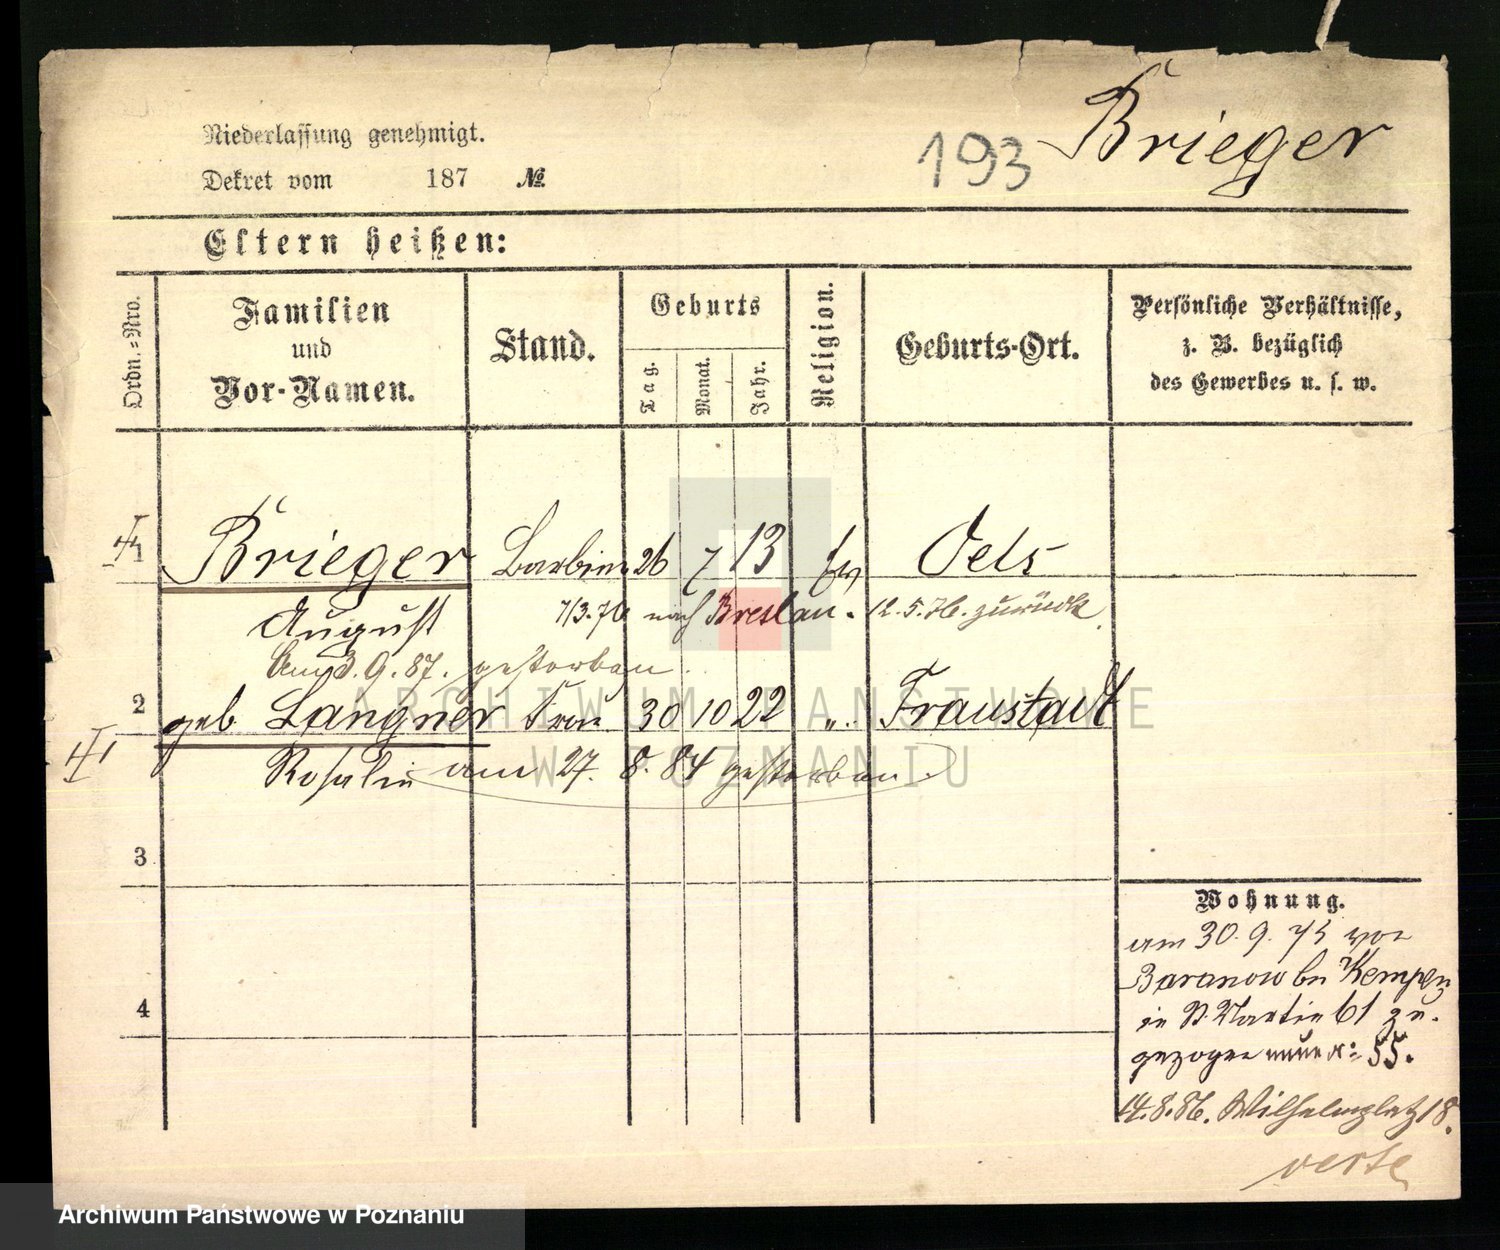 Niederlassung genehmigt.
Dekret vom 187 №
193 Brieger
Eltern heißen:
Ordn.=Nro.
Familien
und
Vor-Namen.
Stand.
Geburts
Tag.
Monat.
Jahr.
Religion.
Geburts-Ort.
Persönliche Verhältnisse,
z. B. bezüglich
des Gewerbes u. s. w.
1 Brieger Barbier 26 7 13 ev Oels
August 7/3.76 nach Breslau. 12.5.76. zurück
Am 3.9.87. gestorben.
2 geb. Langner Frau 30 10 22 „. Fraustadt
Rosalie am 27. 8. 84 gestorben
3
4
Wohnung.
am 30. 9. 75 von
Baranow bei Kempen
in St. Martin 61 zu-
gezogen neue N: 55.
14.8.86. Wilhelmplatz 18.
verte
ARCHIWUM PAŃSTWOWE
W POZNANIU
Archiwum Państwowe w Poznaniu